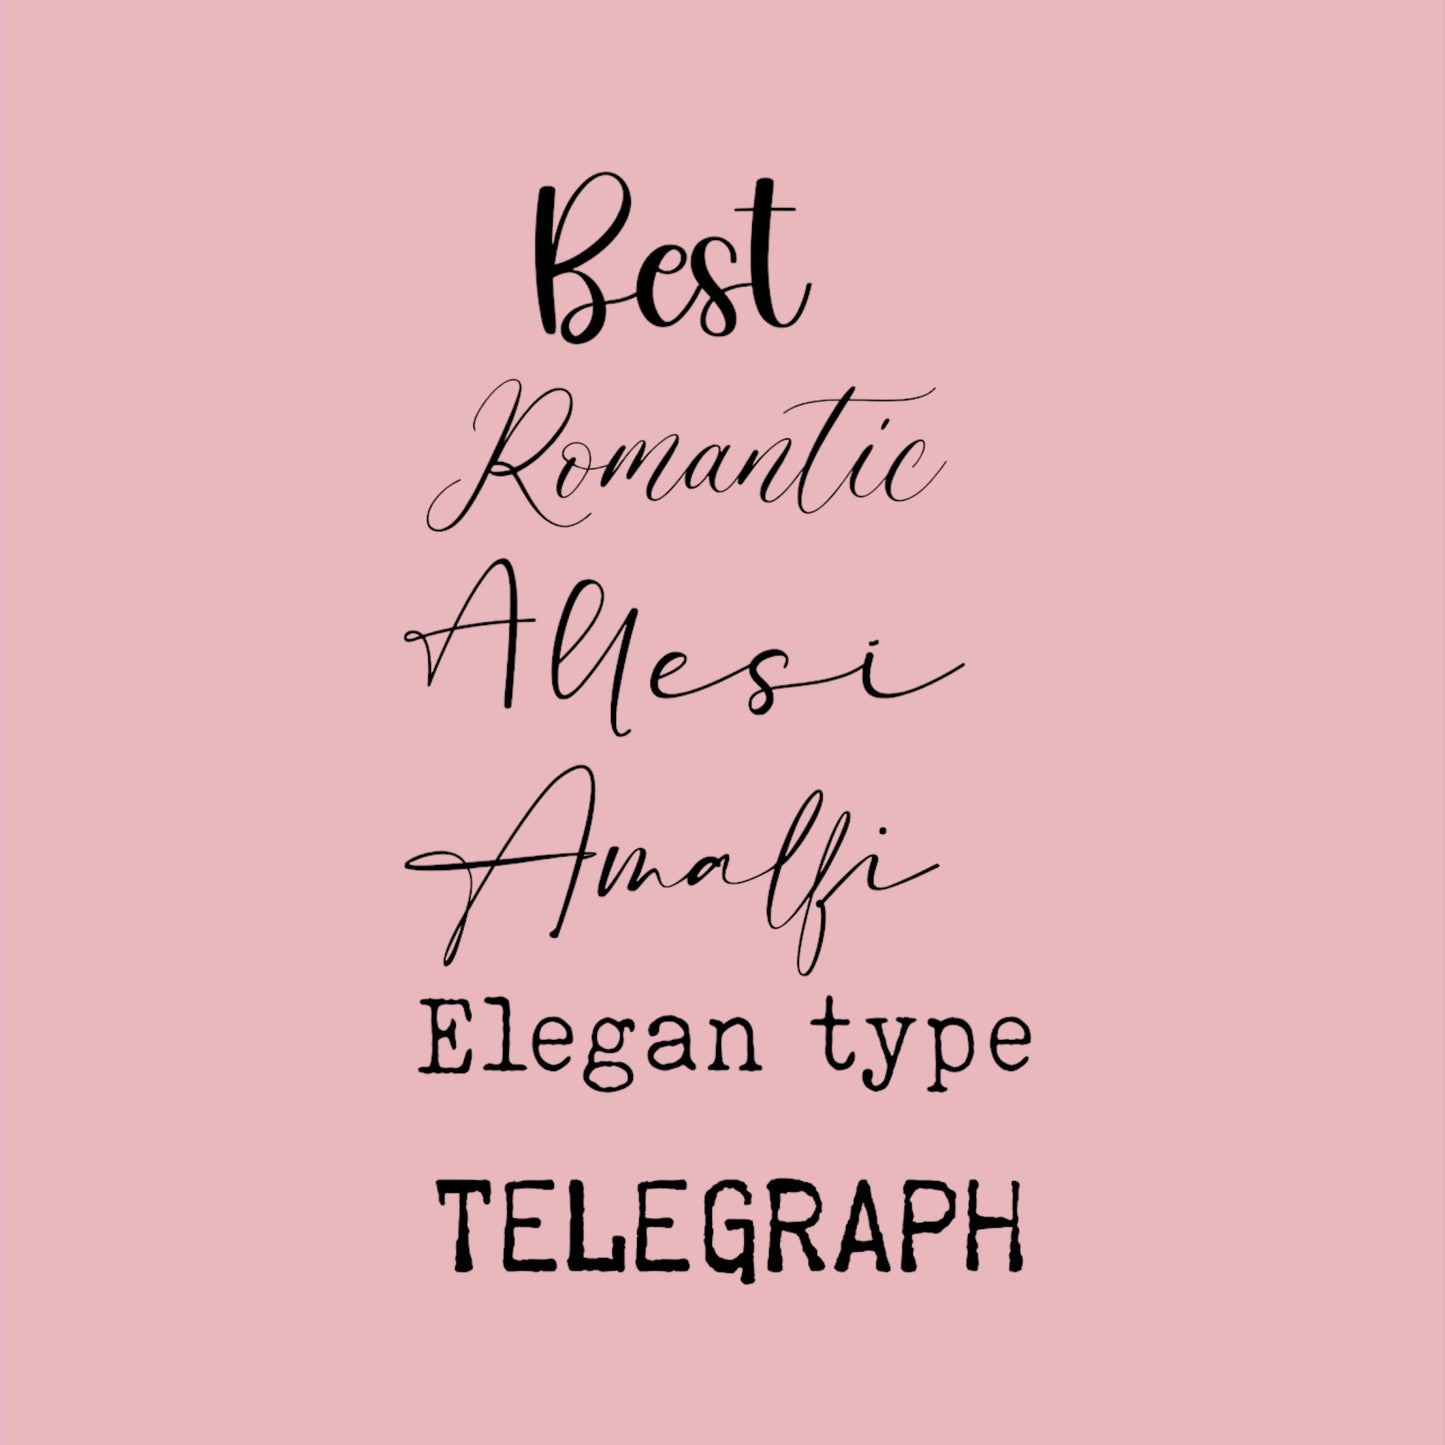 Best
Romantic
Allesi
Amalfi
Elegan type
TELEGRAPH